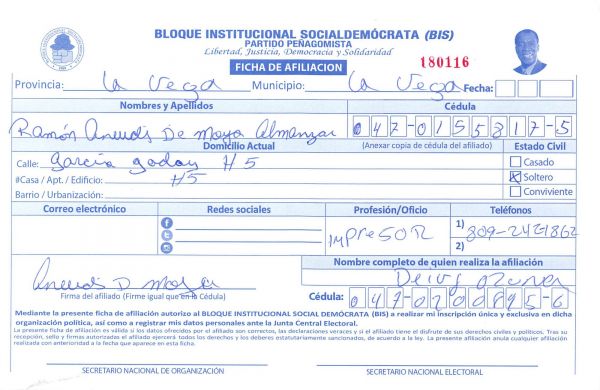 BLOQUE INSTITUCIONAL SOCIALDEMÓCRATA (BIS)
PARTIDO PEÑAGOMISTA
Libertad, Justicia, Democracia y Solidaridad
FICHA DE AFILIACION
180116
Provincia: La Vega Municipio: La Vega Fecha:
Nombres y Apellidos Cédula
Ramón Aneudis De Moya Almanzar 047-0155817-5
Domicilio Actual (Anexar copia de cédula del afiliado) Estado Civil
Calle: García Godoy H5 Casado
#Casa / Apt. / Edificio: H5 Soltero
Barrio / Urbanización: Conviviente
Correo electrónico Redes sociales Profesión/Oficio Teléfonos
IMPRESOR 1) 809-242-1862
2)
Nombre completo de quien realiza la afiliación
Aneudis D Moya
Firma del afiliado (Firme igual que en la Cédula)
Cédula: 047-0200895-6
Mediante la presente ficha de afiliación autorizo al BLOQUE INSTITUCIONAL SOCIAL DEMÓCRATA (BIS) a realizar mi inscripción única y exclusiva en dicha
organización política, así como a registrar mis datos personales ante la Junta Central Electoral.
La presente ficha de afiliación es válida si los datos ofrecidos por el afiliado son correctos, las declaraciones veraces y si el afiliado tiene el disfrute de sus derechos civiles y políticos. Tras su
recepción, sello y firmas autorizadas el afiliado ejercerá todos los derechos y los deberes estatutariamente sancionados, de acuerdo a la ley. La presente afiliación anula cualquier afiliación
realizada con anterioridad a la fecha que aparece en esta ficha.
SECRETARIO NACIONAL DE ORGANIZACIÓN SECRETARIO NACIONAL ELECTORAL